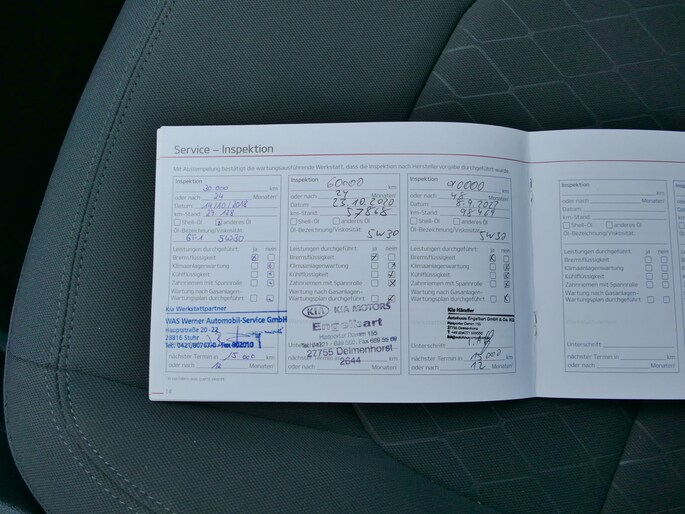 Service – Inspektion
Mit Abstempelung bestätigt die wartungsausführende Werkstatt, dass die Inspektion nach Herstellervorgabe durchgeführt wurde.
Inspektion
30 000 km
oder nach 24 Monaten
Datum:
km-Stand:
Shell-Öl anderes Öl
Öl-Bezeichnung/Viskosität:
5W30
Leistungen durchgeführt: ja nein
Bremsflüssigkeit
Klimaanlagenwartung
Kühlflüssigkeit
Zahnriemen mit Spannrolle
Wartung nach Gasanlagen-
Wartungsplan durchgeführt
Kia Werkstattpartner
WAS Werner Automobil-Service GmbH
Hauptstraße 20-22
28816 Stuhr
nächster Termin in 15 000 km
oder nach 12 Monaten
14
Inspektion
60000 km
oder nach 24 Monaten
Datum: 23.10.2020
km-Stand: 57868
Shell-Öl anderes Öl
Öl-Bezeichnung/Viskosität:
5W30
Leistungen durchgeführt: ja nein
Bremsflüssigkeit
Klimaanlagenwartung
Kühlflüssigkeit
Zahnriemen mit Spannrolle
Wartung nach Gasanlagen-
Wartungsplan durchgeführt
KIA KIA MOTORS
Engelbart
27755 Delmenhorst
2644
nächster Termin in km
oder nach Monaten
Inspektion
90000 km
oder nach 48 Monaten
Datum: 8.9.2022
km-Stand: 98 469
Shell-Öl anderes Öl
Öl-Bezeichnung/Viskosität:
5W30
Leistungen durchgeführt: ja nein
Bremsflüssigkeit
Klimaanlagenwartung
Kühlflüssigkeit
Zahnriemen mit Spannrolle
Wartung nach Gasanlagen-
Wartungsplan durchgeführt
Kia Händler
Autohaus Engelbart GmbH & Co. KG
Unterschrift
nächster Termin in 15000 km
oder nach 12 Monaten
Inspektion
oder nach
Datum:
km-Stand:
Shell-Öl
Öl-Bezeichnung/
Leistungen durchgeführt:
Bremsflüssigkeit
Klimaanlagenwartung
Kühlflüssigkeit
Zahnriemen mit Spannrolle
Wartung nach Gasanlagen-
Wartungsplan durchgeführt
Unterschrift
nächster Termin in
oder nach